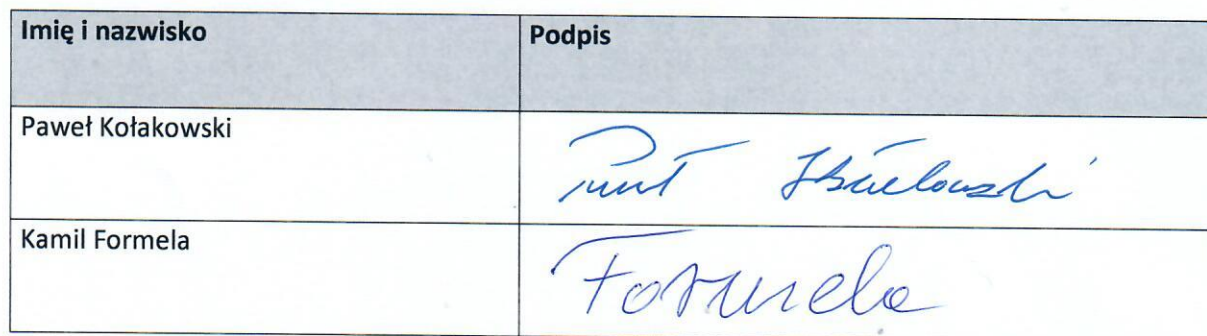 Imię i nazwisko Podpis
Paweł Kołakowski Paweł Kołakowski
Kamil Formela Formela